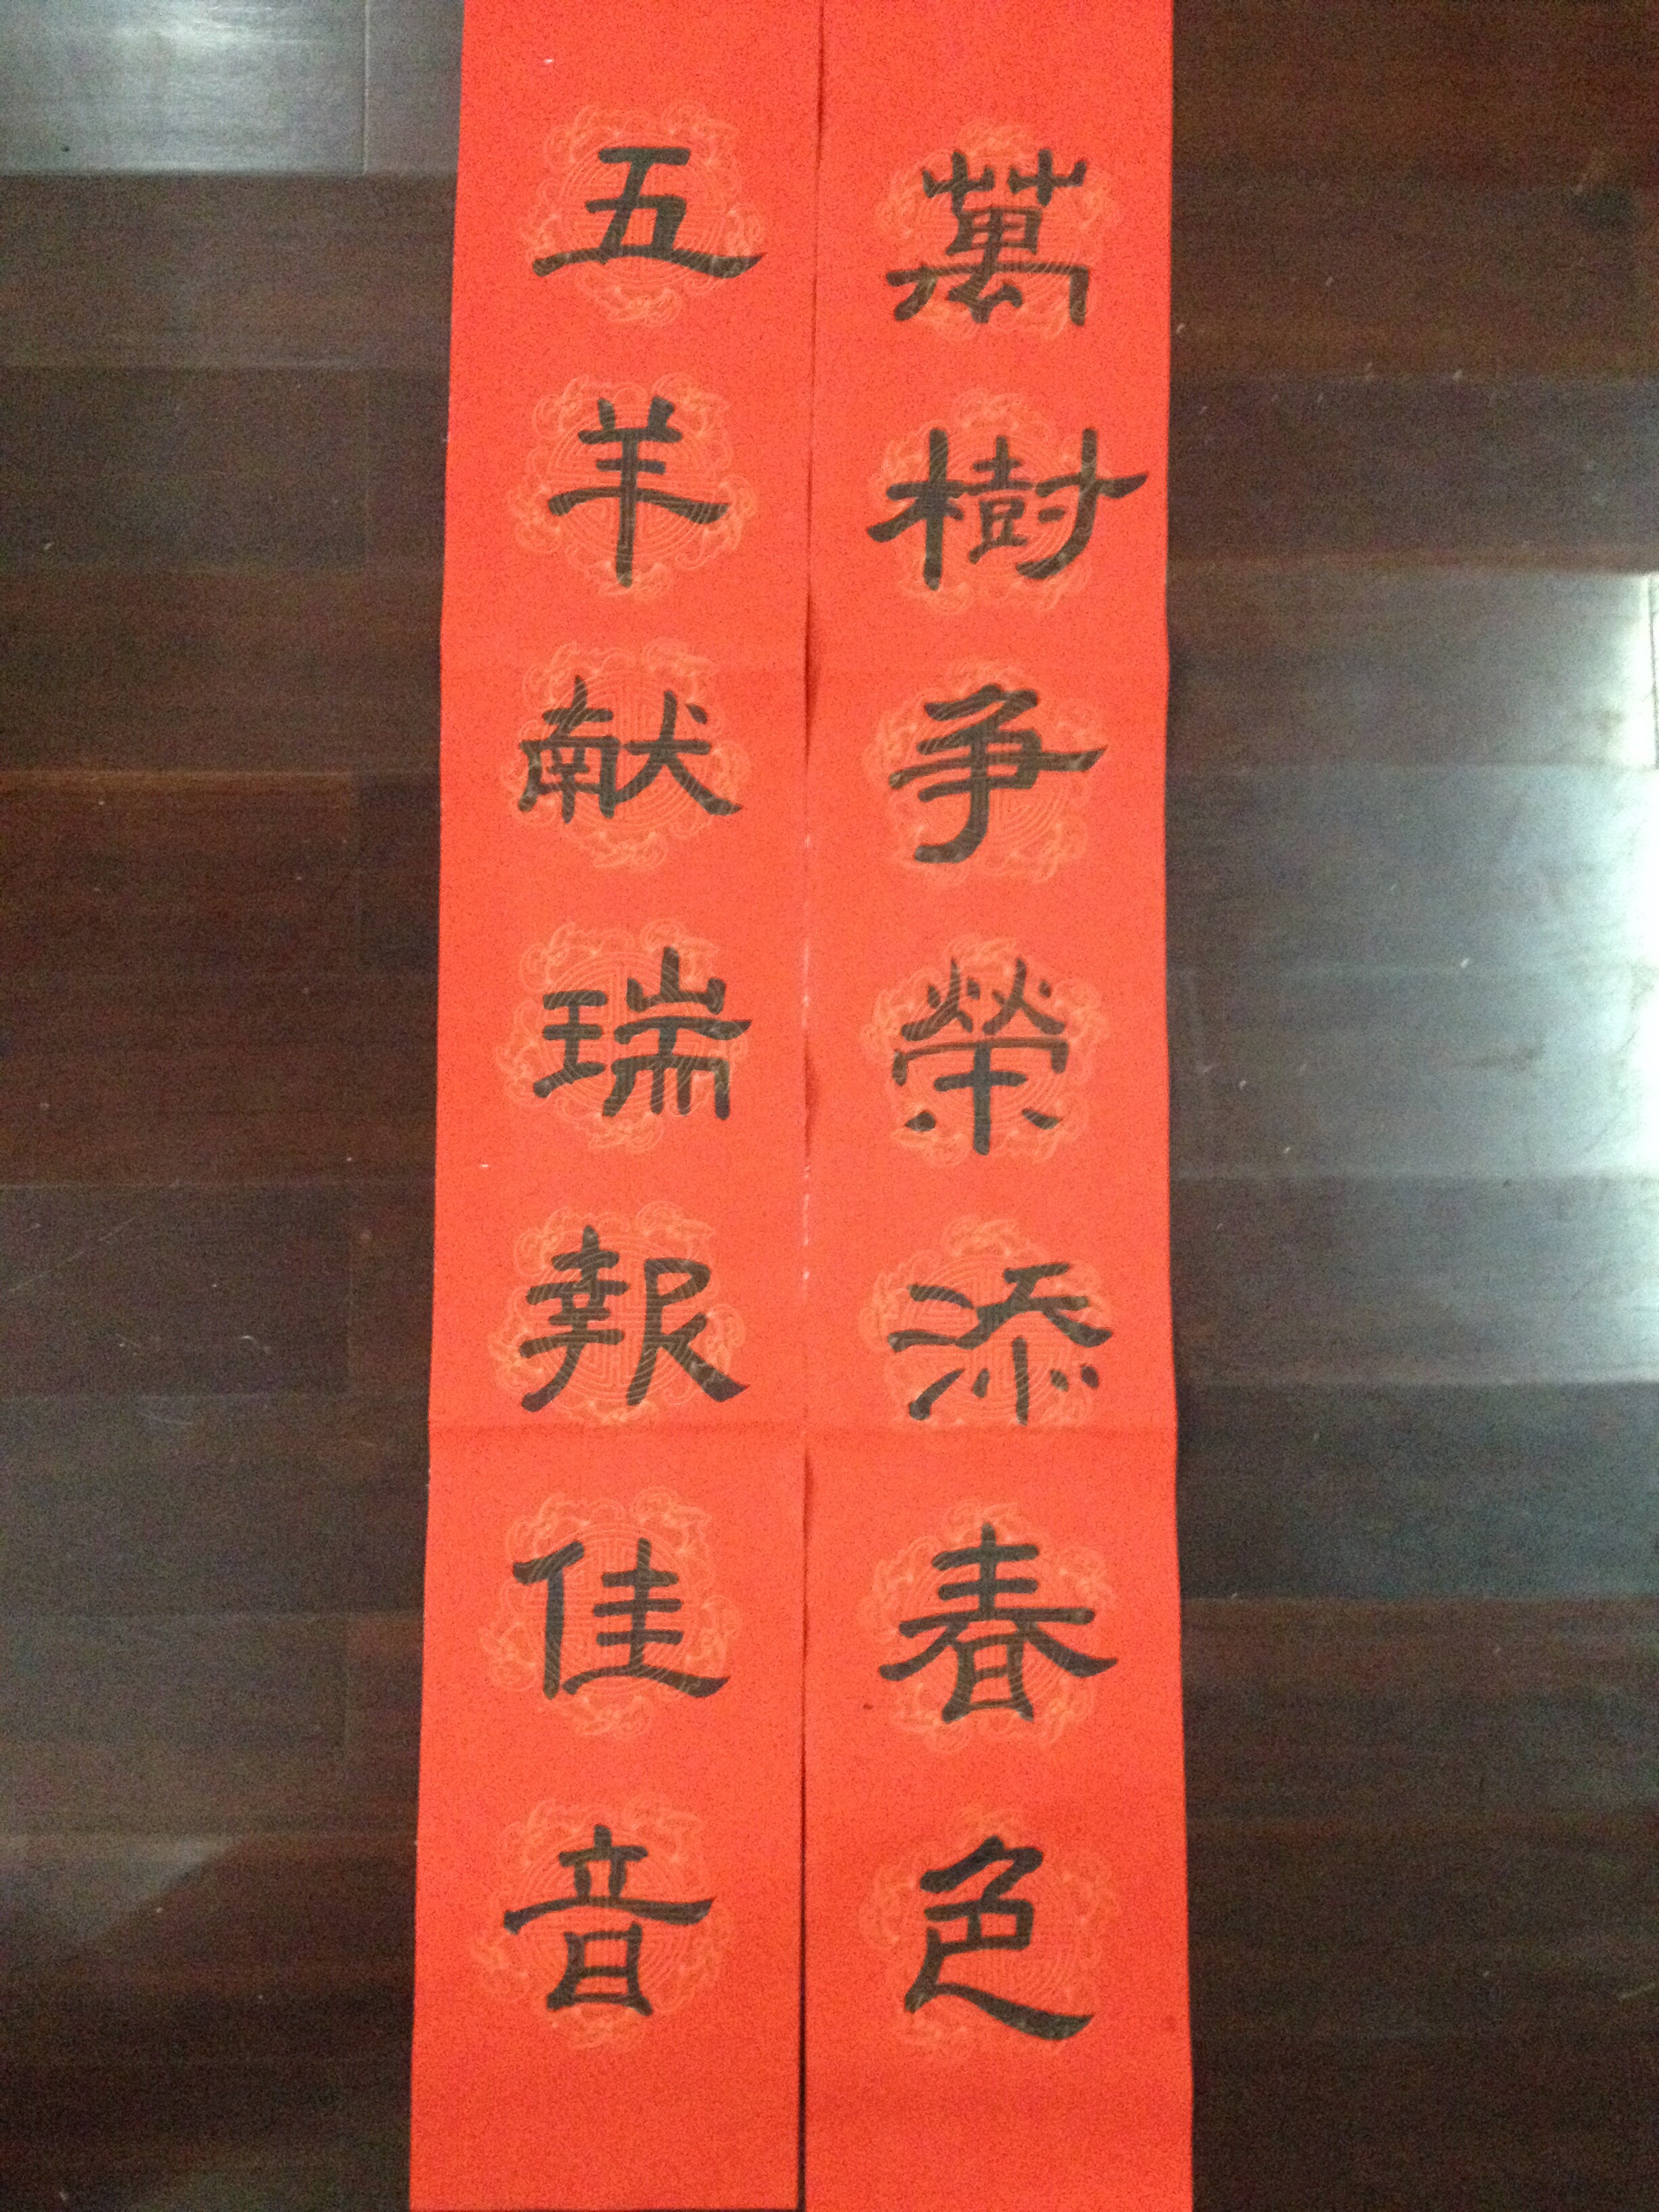 萬樹争榮添春色
五羊献瑞報佳音